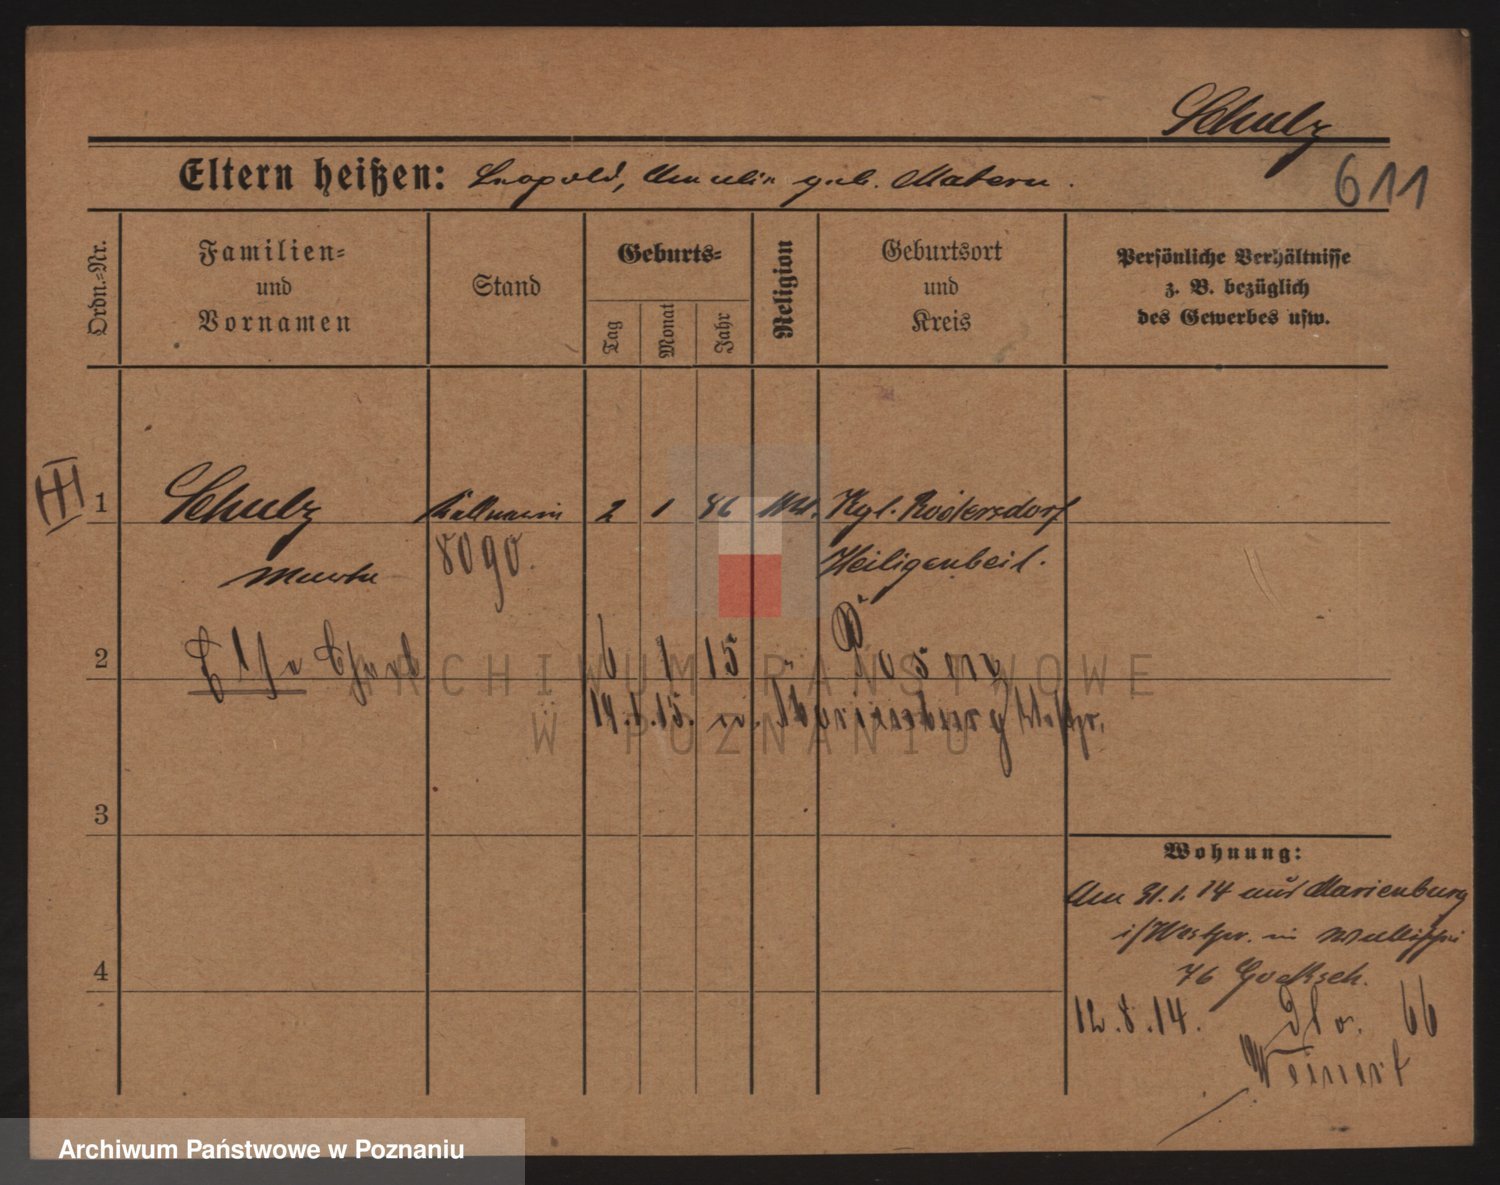 Schulz
Eltern heißen: Leopold, Amalie geb. Matern.
611
Ordn.-Nr.
Familien-
und
Vornamen
Stand
Geburts-
Tag
Monat
Jahr
Religion
Geburtsort
und
Kreis
Persönliche Verhältnisse
z. B. bezüglich
des Gewerbes usw.
III
1 Schulz 2 1 86 Kgl. Rödersdorf
Martha 8090. Heiligenbeil.
2 Else 6 1 15 Posen
14.1.15. Marienburg Westpr.
ARCHIWUM PAŃSTWOWE
W POZNANIU
3
Wohnung:
Am 31.1.14 aus Marienburg
i/Westpr. in
4
76
12.8.14. dto. 66
Weinert
Archiwum Państwowe w Poznaniu